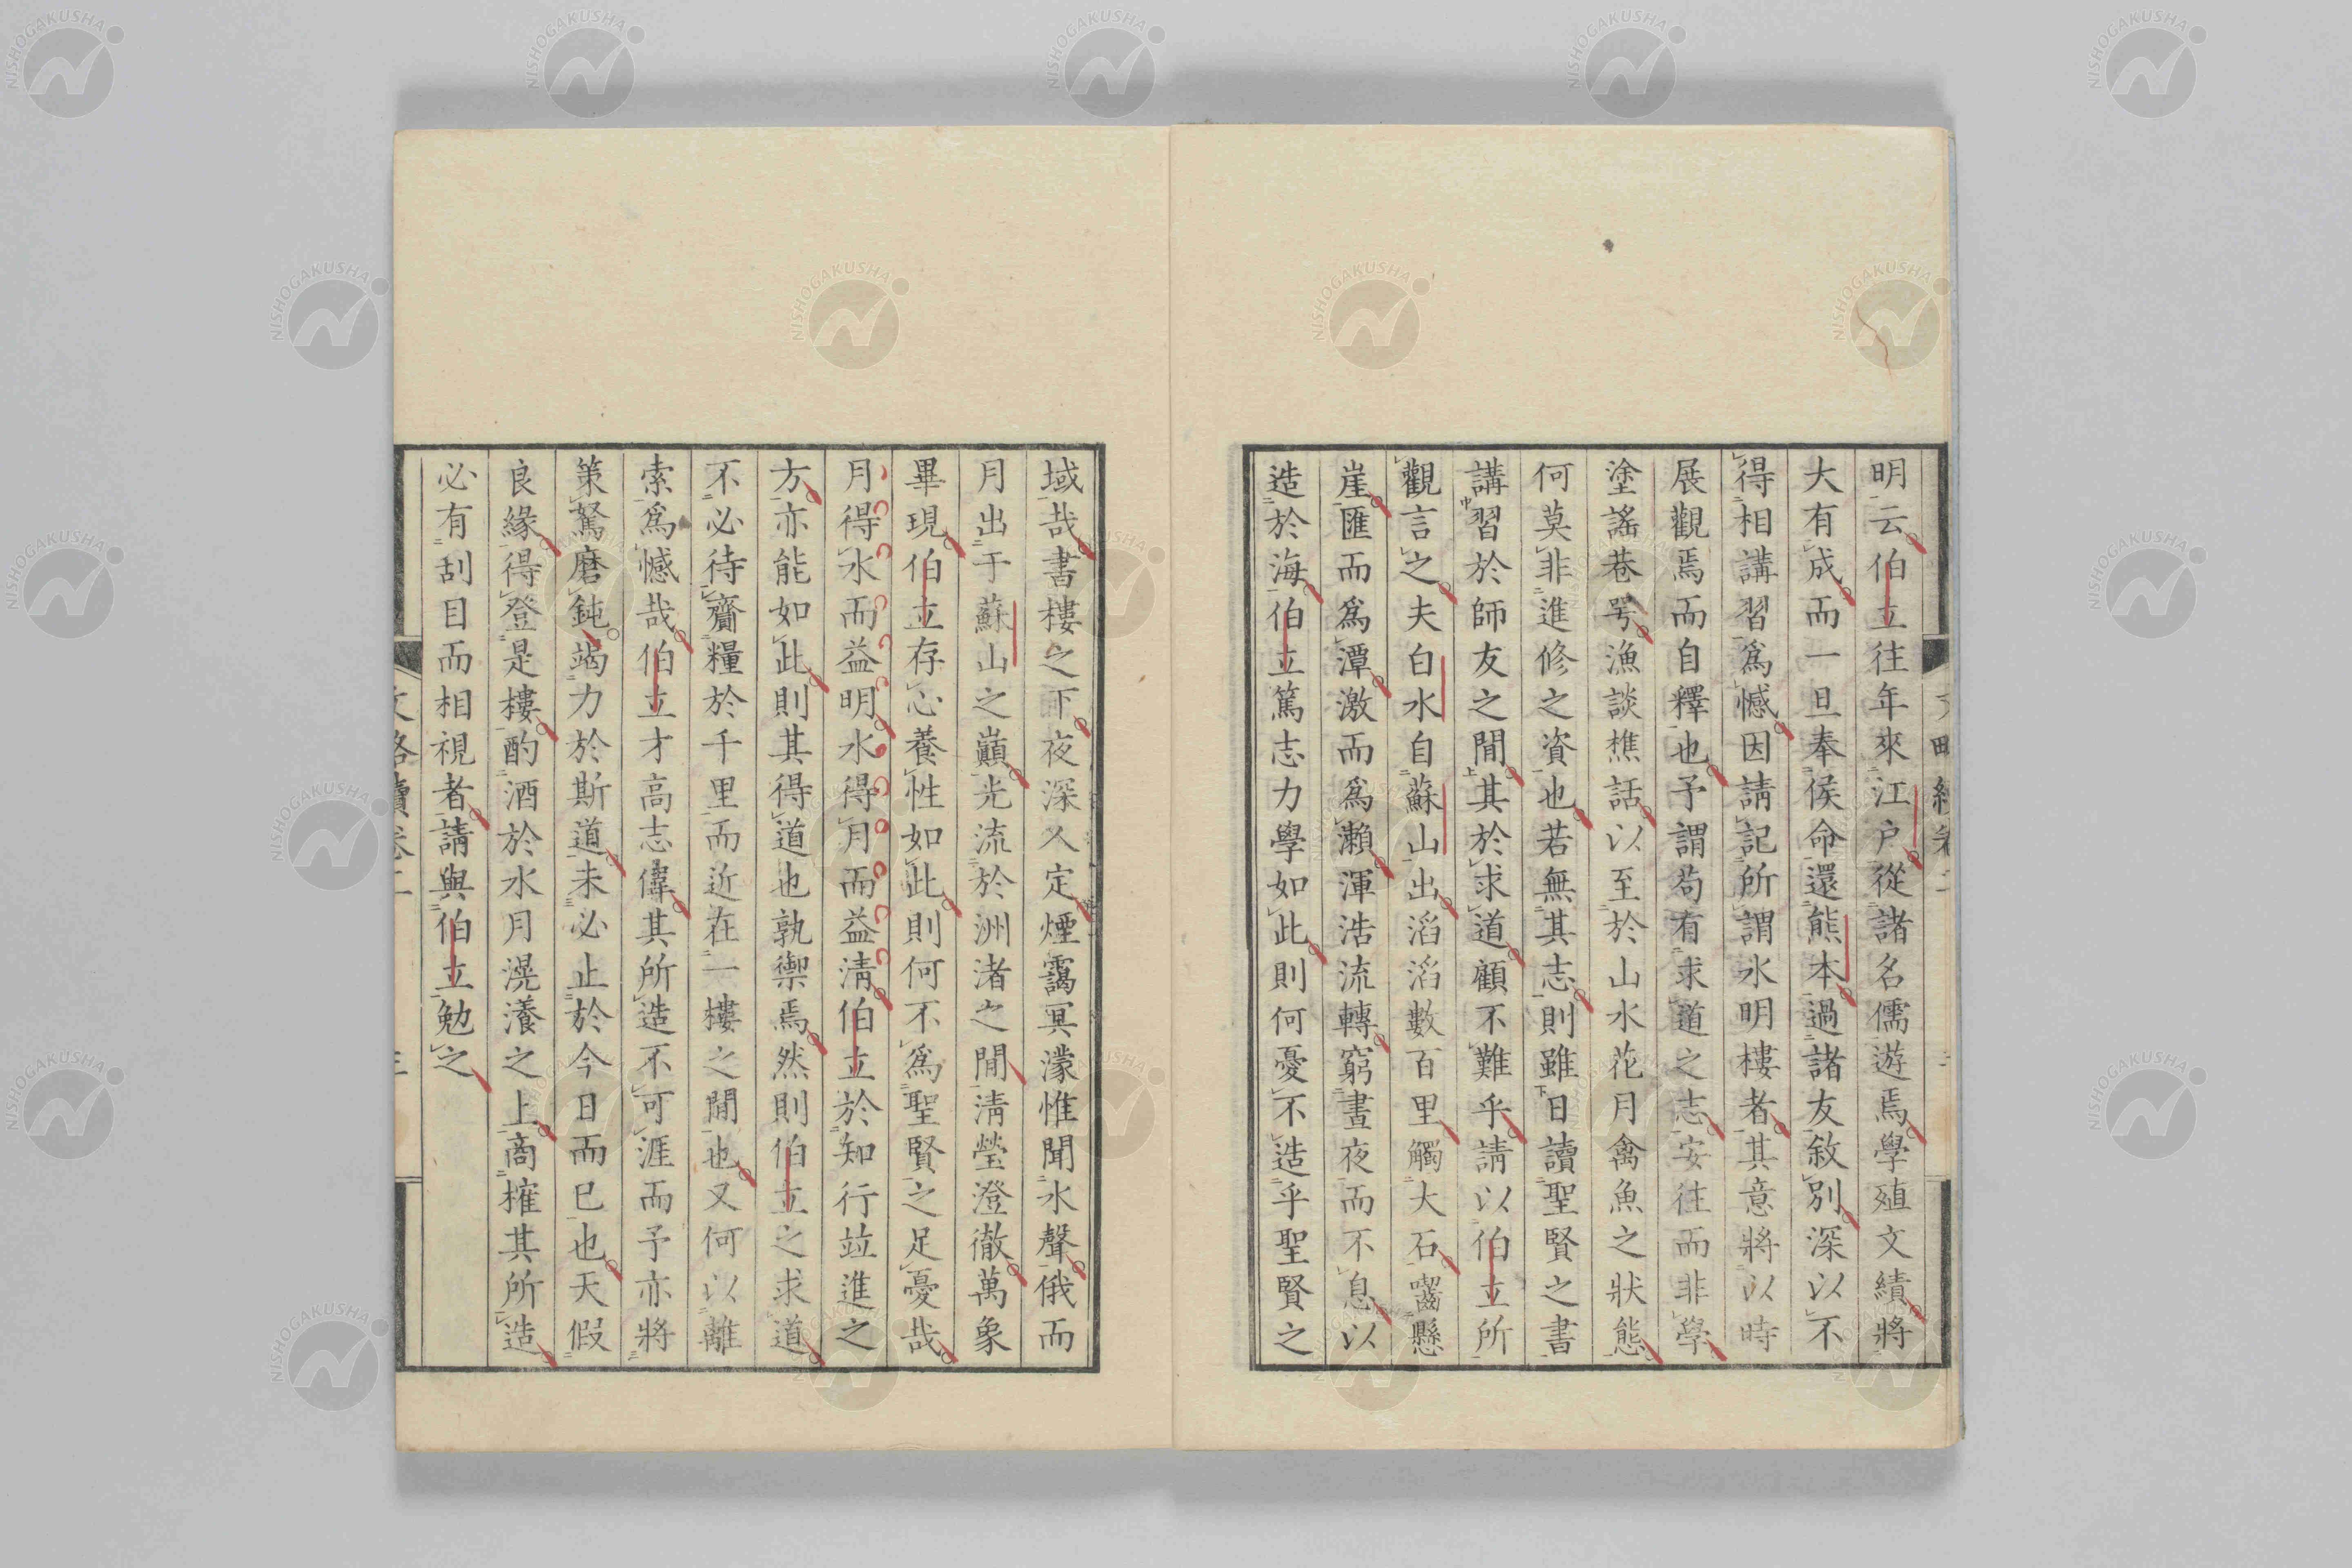 明云伯立往年來江戸從諸名儒遊焉學殖文績將
大有成而一旦奉侯命還熊本過諸友敘別深以不
得相講習爲憾因請記所謂水明樓者其意將以時
展觀焉而自釋也予謂苟有求道之志安往而非學
塗謠巷咢漁談樵話以至於山水花月禽魚之狀態
何莫非進修之資也若無其志則雖日讀聖賢之書
講習於師友之閒其於求道顧不難乎請以伯立所
觀言之夫白水自蘇山出滔滔數百里觸大石嚙懸
崖匯而爲潭激而爲瀨渾浩流轉窮晝夜而不息以
造於海伯立篤志力學如此則何憂不造乎聖賢之
域哉書樓之下夜深人定煙靄冥濛惟聞水聲俄而
月出于蘇山之巔光流於洲渚之閒淸瑩澄徹萬象
畢現伯立存心養性如此則何不爲聖賢之足憂哉
月得水而益明水得月而益淸伯立於知行竝進之
方亦能如此則其得道也孰禦焉然則伯立之求道
不必待齎糧於千里而近在一樓之閒也又何以離
索爲憾哉伯立才高志偉其所造不可涯而予亦將
策駑磨鈍竭力於斯道未必止於今日而已也天假
良緣得登是樓酌酒於水月滉瀁之上商榷其所造
必有刮目而相視者請與伯立勉之
文略續卷二
NISHOGAKUSHA